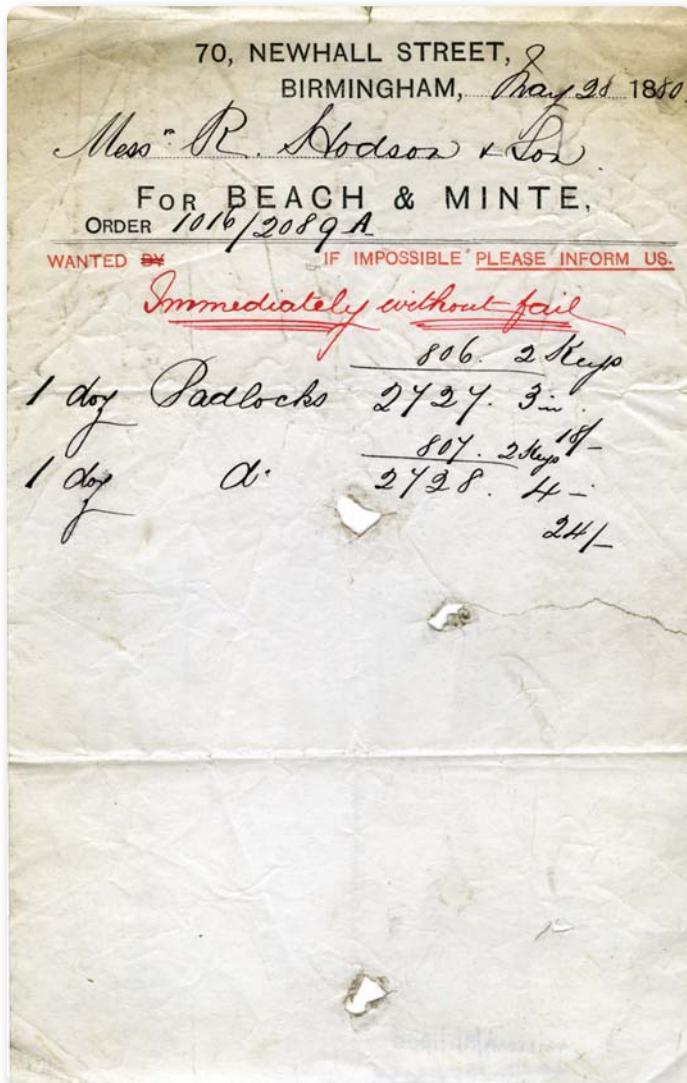 70, NEWHALL STREET,
BIRMINGHAM, May 28 1880
Messrs R. Hodson & Son
FOR BEACH & MINTE.
ORDER 1016/2089 A
WANTED BY IF IMPOSSIBLE PLEASE INFORM US.
Immediately without fail
806. 2 Keys
1 doz Padlocks 2727. 3 in
18/-
807. 2 Keys
1 doz do 2728. 4 -
24/-